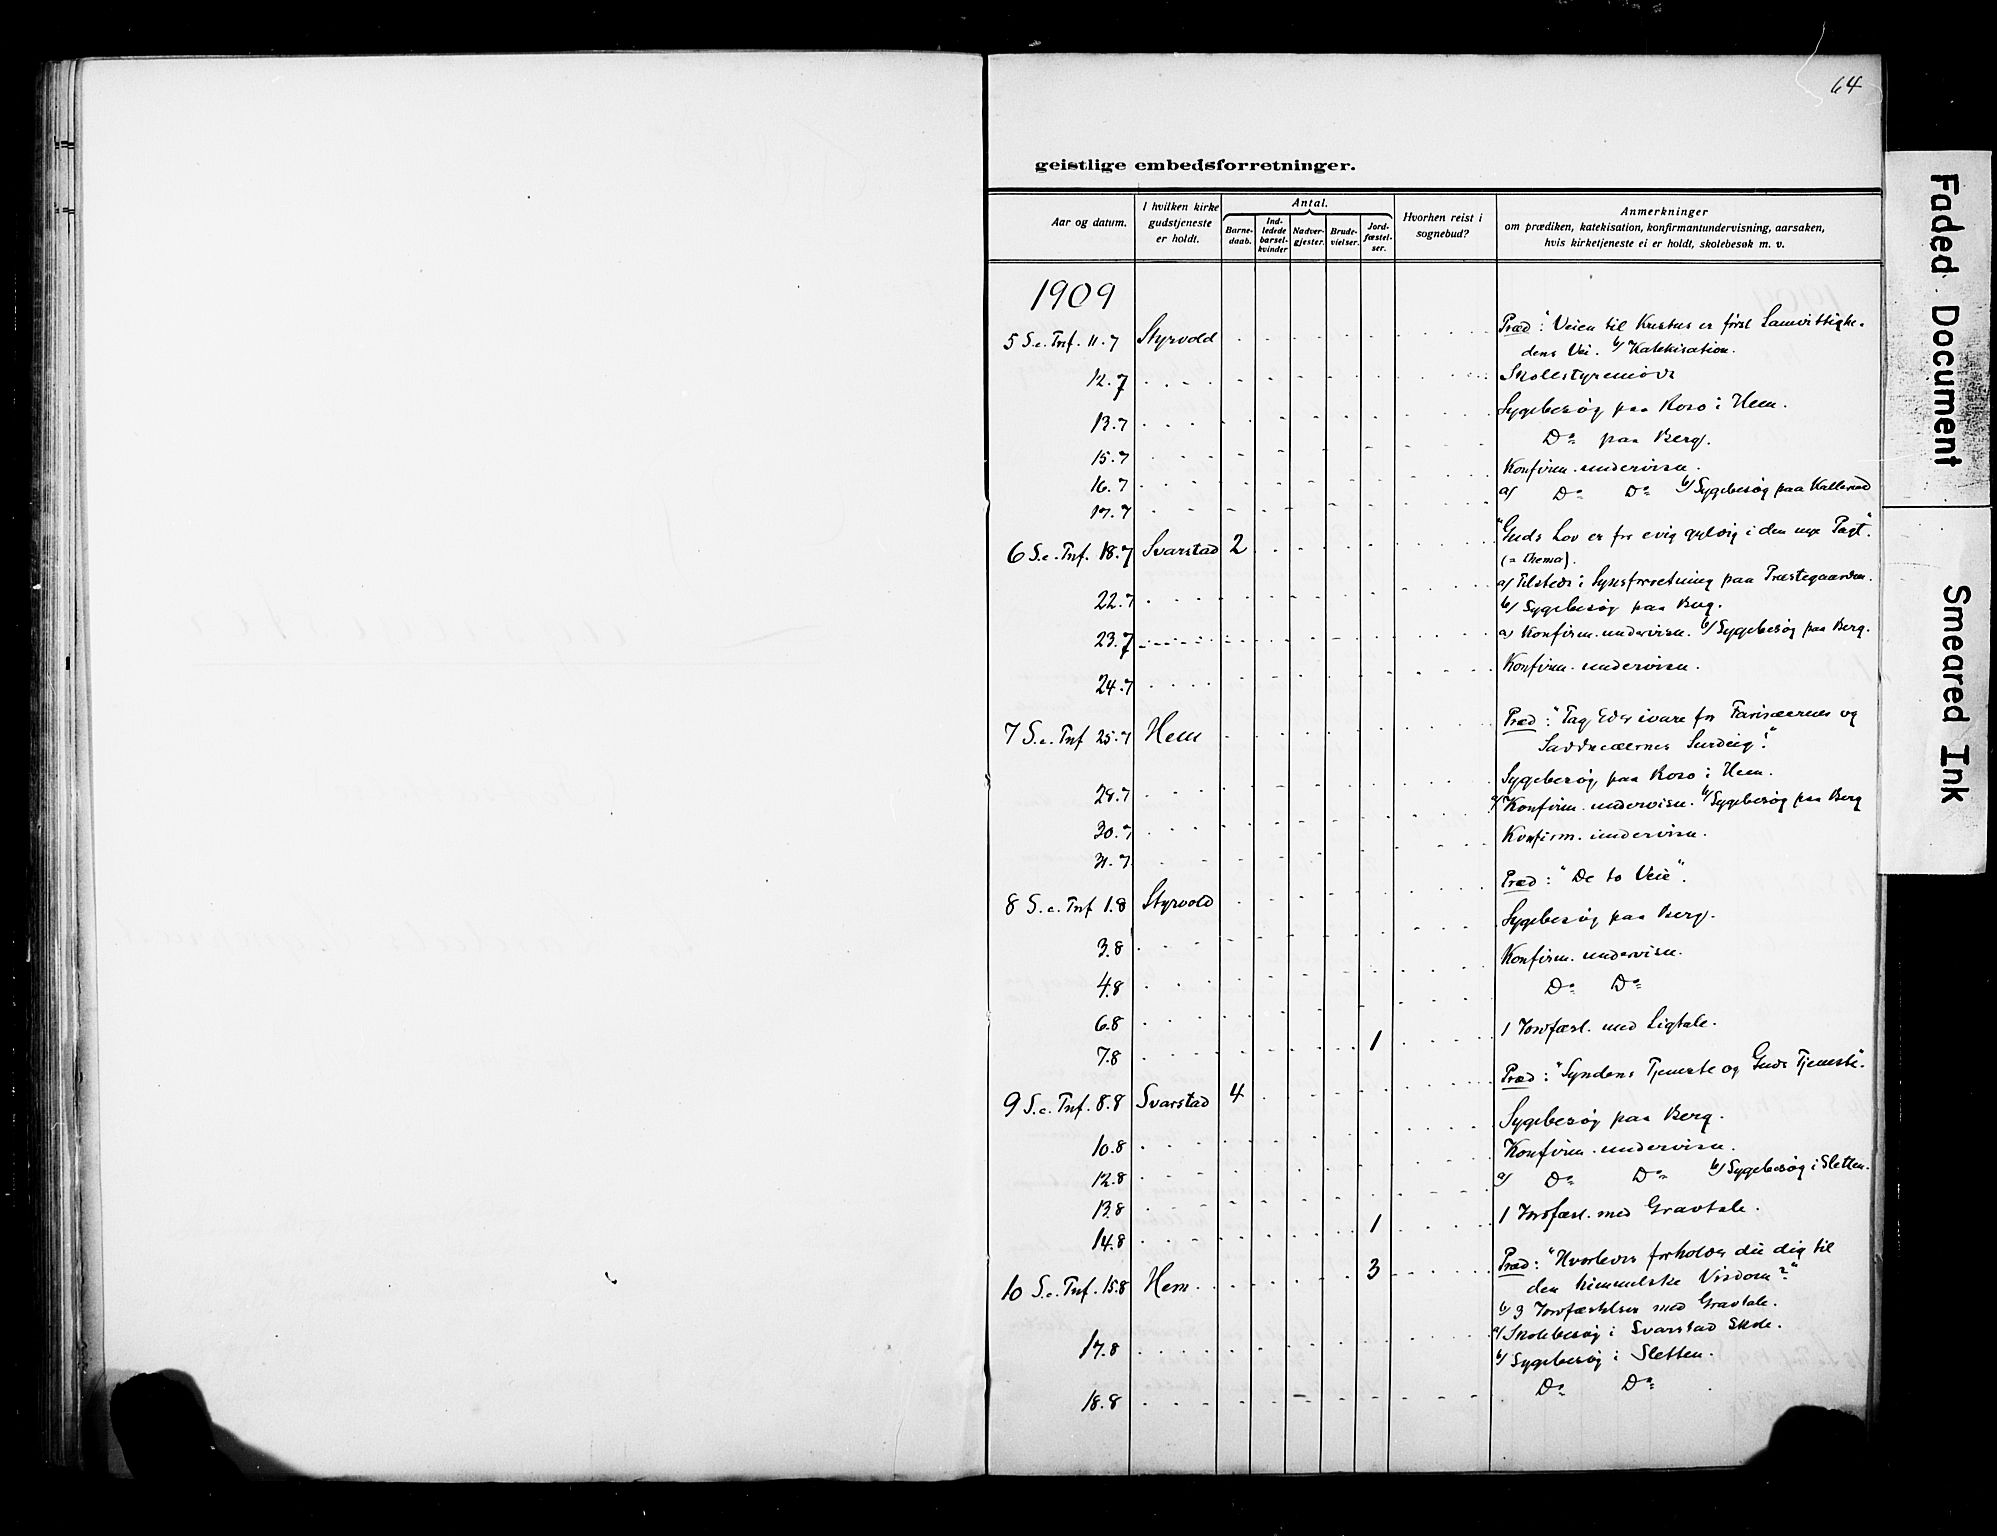 64
geistlige embedsforretninger.
Aar og datum.
I hvilken kirke gudstjeneste er holdt.
Antal.
Barne-daab.
Ind-ledede barsel-kvinder
Nadver-gjester.
Brude-vielser.
Jord-fæstel-ser.
Hvorhen reist i sognebud?
Anmerkninger
om prædiken, katekisation, konfirmantundervisning, aarsaken,
hvis kirketjeneste ei er holdt, skolebesøk m. v.
1909
5 S. e. Tnf. 11.7 Styrvold Præd: "Veien til Kristus er først Samvittighe-
dens Vei. b/ Katekisation.
12.7 Skolestyremøde
13.7 Sygebesøg paa Roso i Hem.
15.7 Do paa Berg.
16.7 Konfirm. undervisn.
17.7 a/ Do Do b/ Sygebesøg paa
6 S. e. Tnf. 18.7 Svarstad 2 "Guds Lov er for evig gyldig i den nye Pagt".
(= Thema).
22.7 a/ Tilstede i Synsforretning paa Præstegaarden.
b/ Sygebesøg paa Berg.
23.7 a) Konfirm. undervisn. b/ Sygebesøg paa Berg.
24.7 Konfirm. undervisn.
7 S. e. Tnf 25.7 Hem Præd: "Tag Eder ivare for Farisæernes og
Sadducæernes Surdeig!"
28.7 Sygebesøg paa Roso i Hem.
30.7 a/ Konfirm. undervisn. b/ Sygebesøg paa Berg
31.7 Konfirm. undervisn.
8 S. e. Tnf 1.8 Styrvold Præd: "De to Veie".
3.8 Sygebesøg paa Berg.
4.8 Konfirm. undervisn.
6.8 Do Do
7.8 1 1 Jordfæst. med Ligtale.
9 S. e. Tnf. 8.8 Svarstad 4 Præd: "Syndens Tjeneste og Guds Tjeneste".
10.8 Sygebesøg paa Berg.
12.8 Konfirm. undervisn.
13.8 a/ Do Do b/ Sygebesøg i Sletten.
14.8 1 1 Jordfæst. med Gravtale.
10 S. e. Tnf. 15.8 Hem 3 Præd: "Hvorledes forholder du dig til
den himmelske Visdom?"
b/ 3 Jordfæstelser med Gravtale.
17.8 a/ Skolebesøg i Svarstad Skole.
b/ Sygebesøg i Sletten.
18.8 Do Do
Faded Document
Smeared Ink